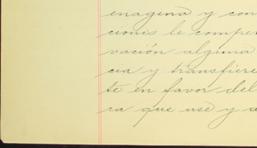 enagena y con
ciones le compe
vación alguna
cia y transfiere
te en favor del
ra que use y d